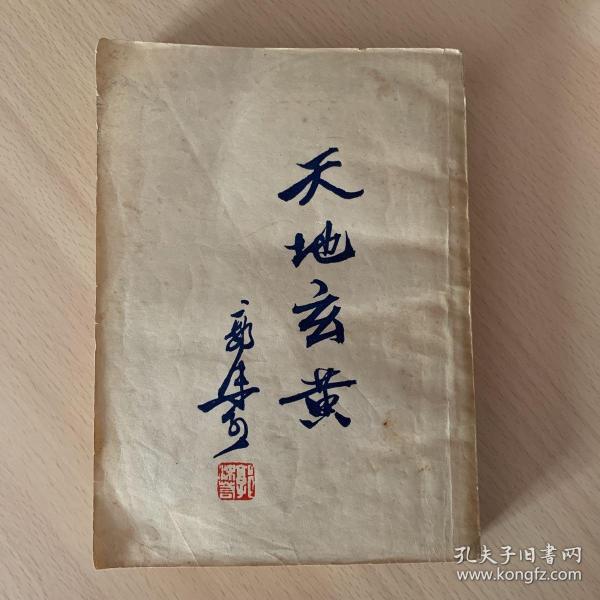 天地玄黄
郭沫若
郭沫若
孔夫子旧書网
www.kongfz.com